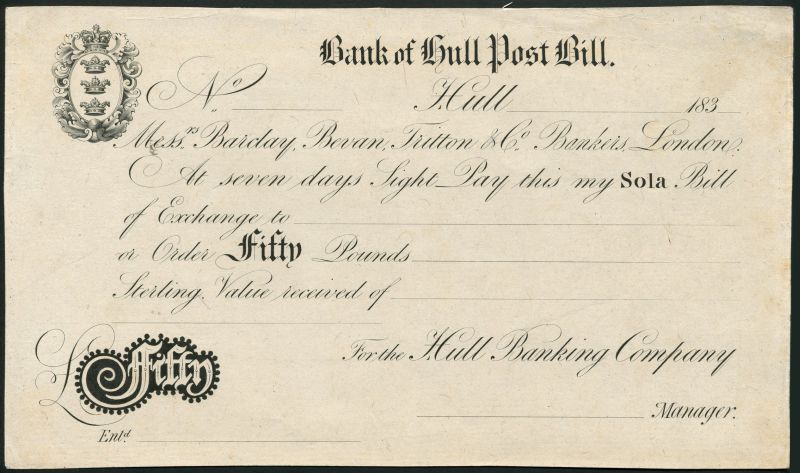 Bank of Hull Post Bill.
No. Hull 183
Messrs. Barclay, Bevan, Tritton & Co. Bankers, London.
At seven days Sight Pay this my Sola Bill
of Exchange to
or Order Fifty Pounds
Sterling. Value received of
For the Hull Banking Company
£ Fifty
Manager.
Entd.